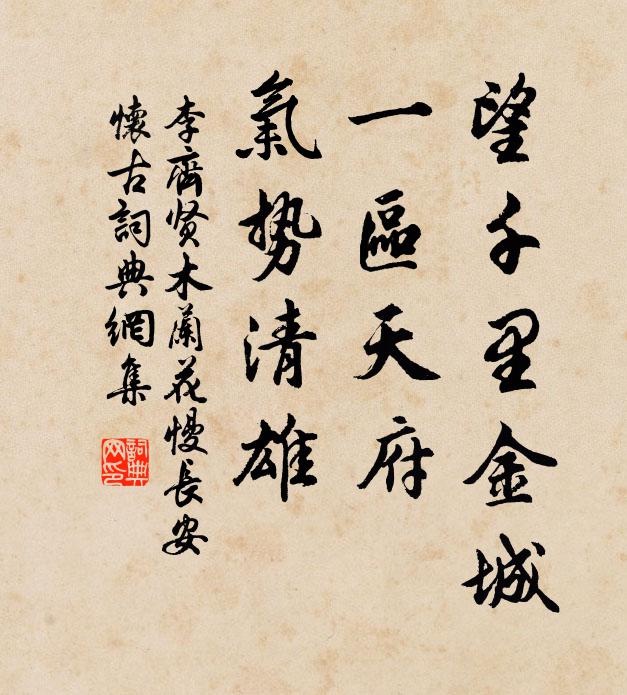 望千里金城
一區天府
氣势清雄
李齊贤木蘭花慢長安
懷古詞典網集
詞典
网印